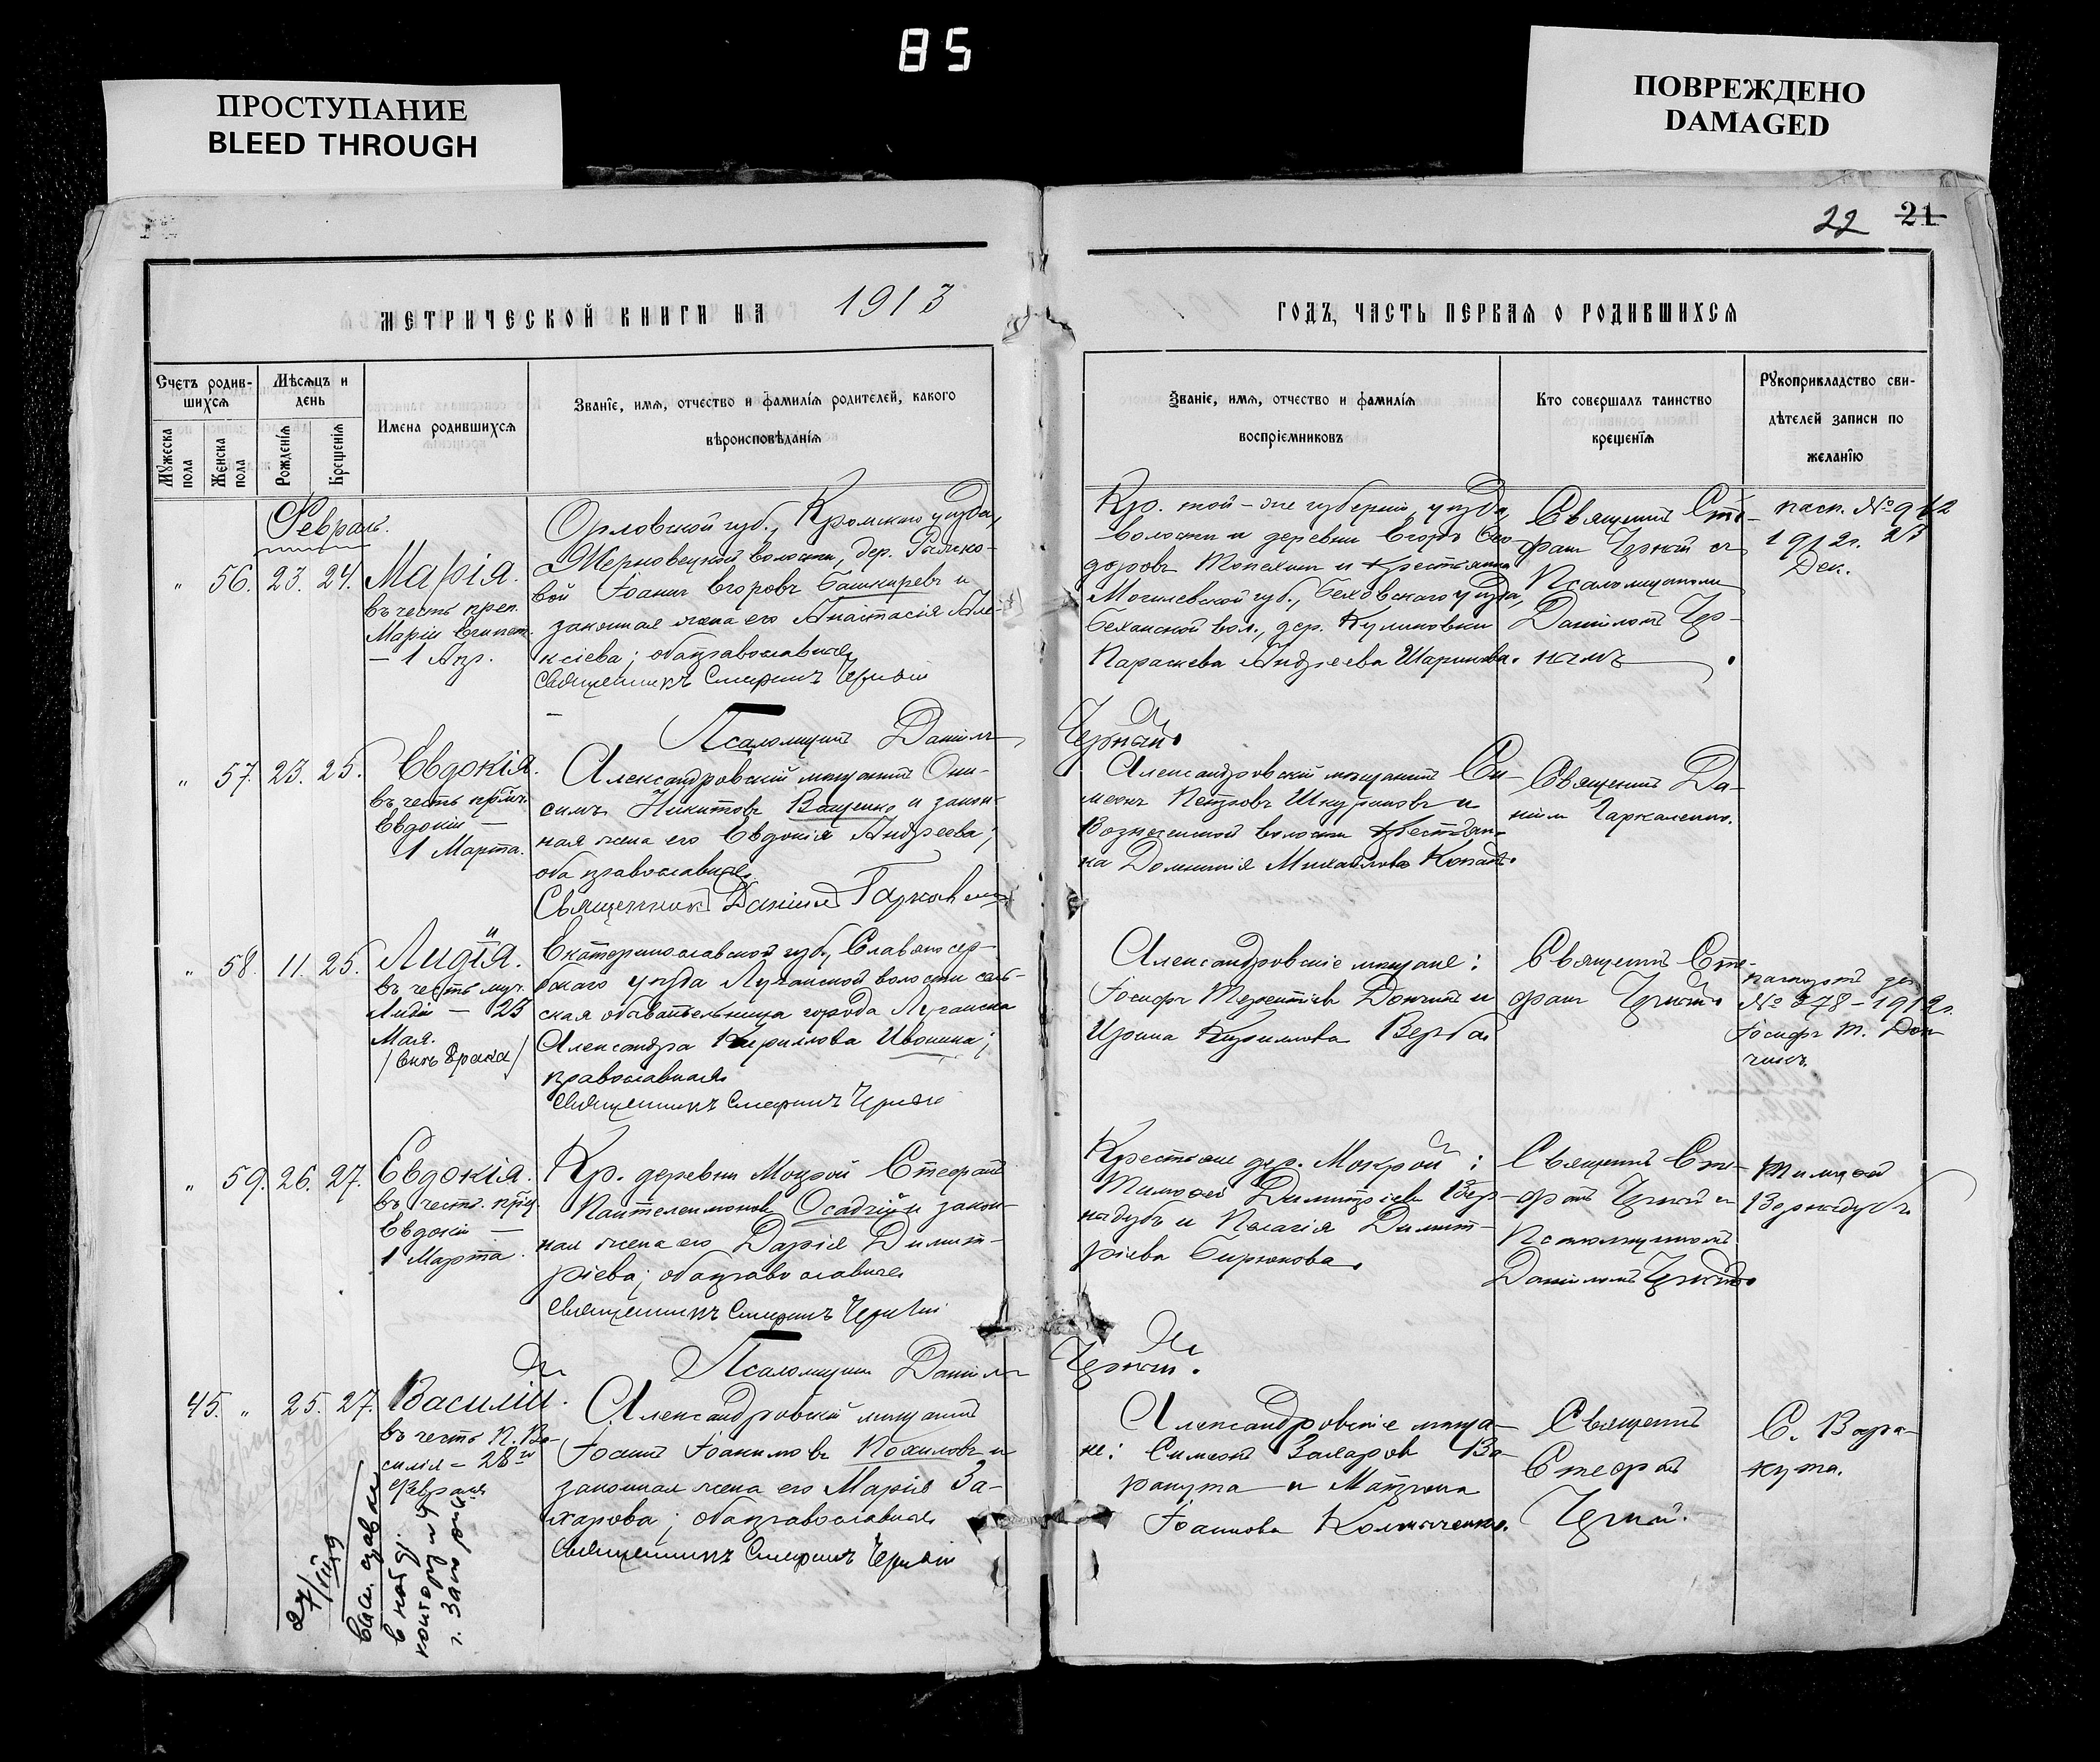 85
ПРОСТУПАНИЕ
BLEED THROUGH
ПОВРЕЖДЕНО
DAMAGED
22 21
МЕТРИЧЕСКОЙ КНИГИ НА 1913
ГОДЪ, ЧАСТЬ ПЕРВАЯ О РОДИВШИХСЯ
Счетъ родив-
шихся
Мѣсяцъ и
день
Мужеска пола
Женска пола
Рожденія
Крещенія
Имена родившихся
Званіе, имя, отчество и фамилія родителей, какого
вѣроисповѣданія
Званіе, имя, отчество и фамилія
воспріемниковъ
Кто совершалъ таинство
крещенія
Рукоприкладство сви-
дѣтелей записи по
желанію
Февраль.
" 56. 23. 24.
Марія.
въ честь преп.
Маріи Египет.
— 1 Апр.
Орловской губ., Кромскаго уѣзда,
волости, дер.
вой Іоаннъ Егоровъ Башкиревъ и
законная жена его Анастасія Але-
ксіева; оба православные
Священникъ Стефанъ Черный
Псаломщикъ Даніилъ
Черный.
Кр. той-же губерніи, уѣзда,
волости и деревни Егоръ Ѳео-
доровъ и крестьянка
Могилевской губ., Быховскаго уѣзда,
вол., дер. Куликовки
Параскева Андреева
Священникъ Сте-
фанъ Черный съ
Псаломщикомъ
Даніиломъ Чер-
нымъ.
пасп. № 912
1912г. 23
Дек.
" 57. 23. 25.
Евдокія.
въ честь прмч.
Евдокіи —
1 Марта.
Александровскій мѣщанинъ Они-
симъ Никитовъ Ващенко и закон-
ная жена его Евдокія Андреева;
оба православные.
Священникъ Даніилъ
Александровскій мѣщанинъ Си-
меонъ Петровъ Шкуриновъ и
Вознесенской волости крестьян-
ка Домникія Михайлова
Священникъ Да-
ніилъ
" 58. 11. 25.
Лидія.
въ честь муч.
Лидіи — 23
Мая.
/внѣ брака/
Екатеринославской губ., Славяносерб-
скаго уѣзда Луганской волости сель-
ская обывательница города Луганска
Александра Кириллова Ивонина;
православная
Священникъ Стефанъ Черный
Александровскіе мѣщане:
Іосифъ Терентіевъ Дончинъ и
Ирина Кириллова Верба.
Священникъ Сте-
фанъ Черный.
№ 278 - 1912г.
Іосифъ Т. Дон-
чинъ.
" 59. 26. 27.
Евдокія.
въ честь прмц.
Евдокіи —
1 Марта.
Кр. деревни Мокрой Стефанъ
Пантелеимоновъ Осадчій и закон-
ная жена его Дарія Димит-
ріева; оба православные
Священникъ Стефанъ Черный
Псаломщикъ Даніилъ
Черный.
Крестьяне дер. Мокрой:
Тимоѳей Димитріевъ Вер-
нидубъ и Пелагія Димит-
ріева Бирюкова.
Священникъ Сте-
фанъ Черный и
Псаломщикомъ
Даніиломъ Чернымъ.
Тимоѳей
Вернидубъ.
45. " 25. 27.
Василій.
въ честь п. Ва-
силія — 28го
февраля
Александровскій мѣщанинъ
Іоаннъ Іоакимовъ Похиловъ и
законная жена его Марія За-
харова; оба православные
Священникъ Стефанъ Черный
Александровскіе мѣща-
не: Симеонъ Захаровъ Ва-
ракута и Матрона
Іоаннова
Священникъ
Стефанъ
Черный.
С. Вара-
кута.